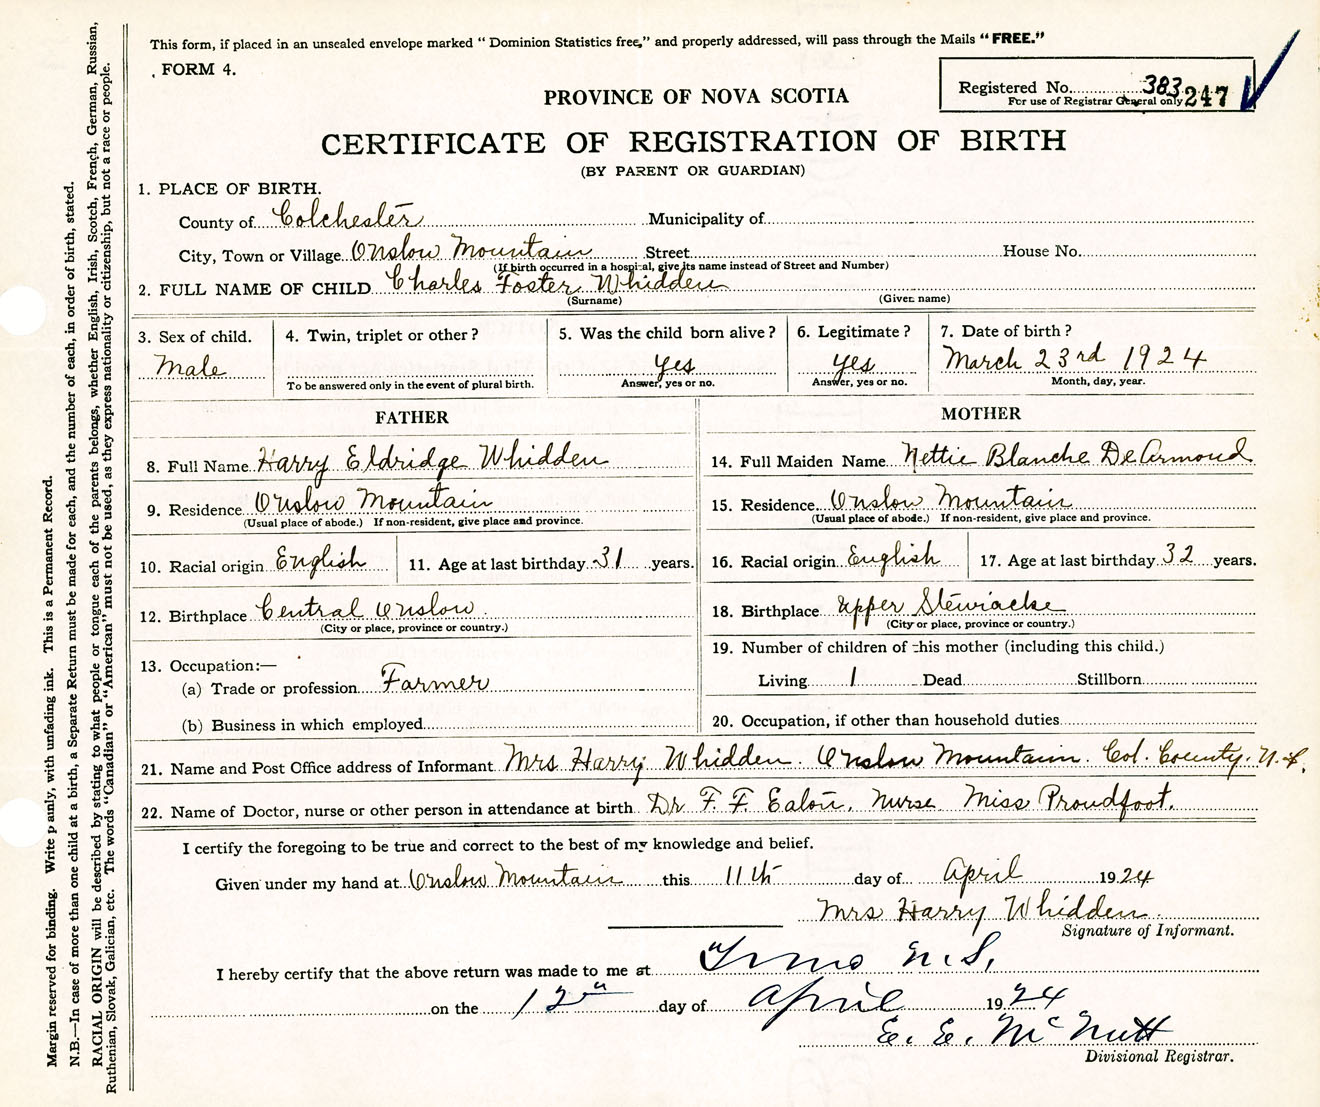 This form, if placed in an unsealed envelope marked " Dominion Statistics free," and properly addressed, will pass through the Mails " FREE."
FORM 4.
Registered No. 383
For use of Registrar General only 247
PROVINCE OF NOVA SCOTIA
CERTIFICATE OF REGISTRATION OF BIRTH
(BY PARENT OR GUARDIAN)
1. PLACE OF BIRTH.
County of Colchester Municipality of
City, Town or Village Onslow Mountain Street House No.
(If birth occurred in a hospital, give its name instead of Street and Number)
2. FULL NAME OF CHILD Charles Foster Whidden
(Surname) (Given name)
3. Sex of child. 4. Twin, triplet or other ? 5. Was the child born alive ? 6. Legitimate ? 7. Date of birth ?
Male yes yes March 23rd 1924
To be answered only in the event of plural birth. Answer, yes or no. Answer, yes or no. Month, day, year.
FATHER MOTHER
8. Full Name Harry Eldridge Whidden 14. Full Maiden Name Nettie Blanche DeArmond
9. Residence Onslow Mountain 15. Residence Onslow Mountain
(Usual place of abode.) If non-resident, give place and province. (Usual place of abode.) If non-resident, give place and province.
10. Racial origin English 11. Age at last birthday 31 years. 16. Racial origin English 17. Age at last birthday 32 years.
12. Birthplace Central Onslow. 18. Birthplace Upper Stewiacke
(City or place, province or country.) (City or place, province or country.)
13. Occupation:— 19. Number of children of this mother (including this child.)
(a) Trade or profession Farmer Living 1 Dead Stillborn
(b) Business in which employed 20. Occupation, if other than household duties
21. Name and Post Office address of Informant Mrs Harry Whidden. Onslow Mountain. Col. County. N.S.
22. Name of Doctor, nurse or other person in attendance at birth Dr F. F. Eaton. Nurse Miss Proudfoot.
I certify the foregoing to be true and correct to the best of my knowledge and belief.
Given under my hand at Onslow Mountain this 11th day of April 1924
Mrs Harry Whidden.
Signature of Informant.
I hereby certify that the above return was made to me at Truro N.S,
on the 12th day of April 1924
E. E. McNutt
Divisional Registrar.
Margin reserved for binding. Write plainly, with unfading ink. This is a Permanent Record.
N.B.—In case of more than one child at a birth, a Separate Return must be made for each, and the number of each, in order of birth, stated.
RACIAL ORIGIN will be described by stating to what people or tongue each of the parents belongs, whether English, Irish, Scotch, French, German, Russian,
Ruthenian, Slovak, Galician, etc. The words "Canadian" or "American" must not be used, as they express nationality or citizenship, but not a race or people.